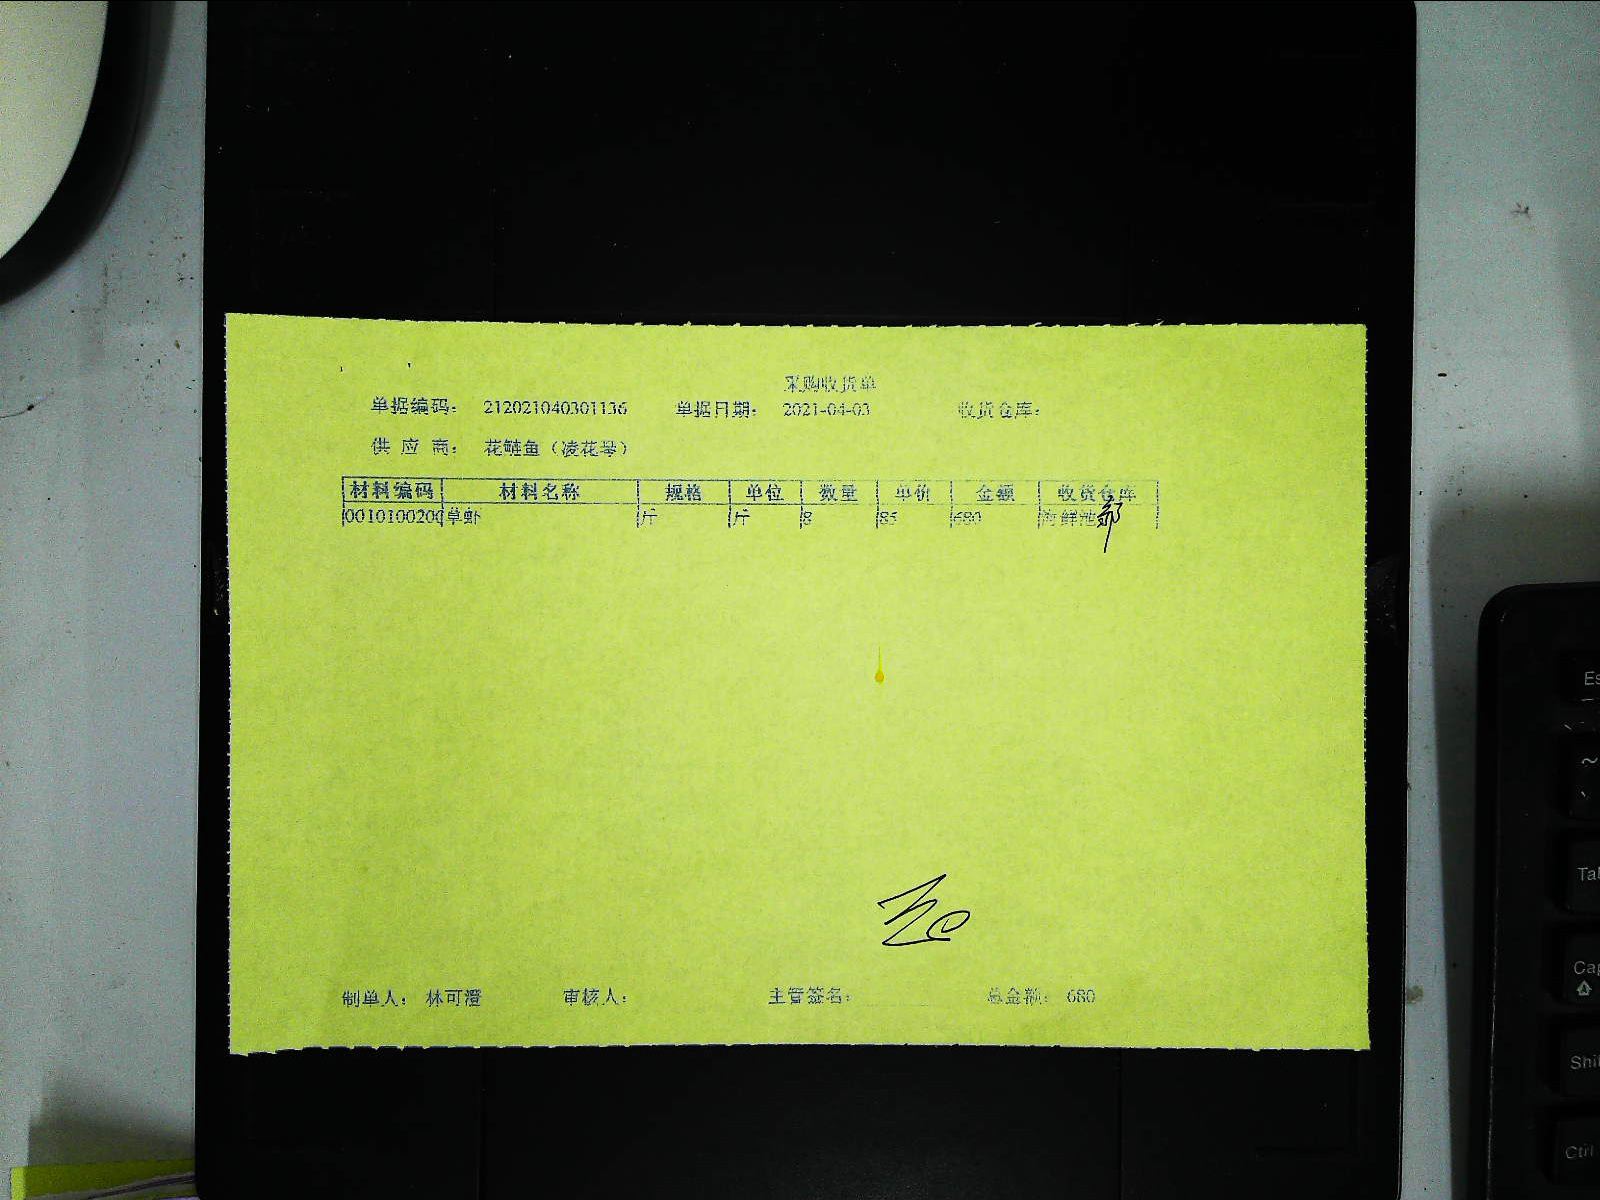 采购收货单
单据编码： 212021040301136 单据日期： 2021-04-03 收货仓库：
供 应 商： 花鲢鱼（凌花琴）
材料编码 材料名称 规格 单位 数量 单价 金额 收货仓库
0010100200 草虾 斤 斤 8 85 680 海鲜池
制单人： 林可澄 审核人： 主管签名： 总金额： 680
Es
~
Tab
Cap
Shi
Ctrl